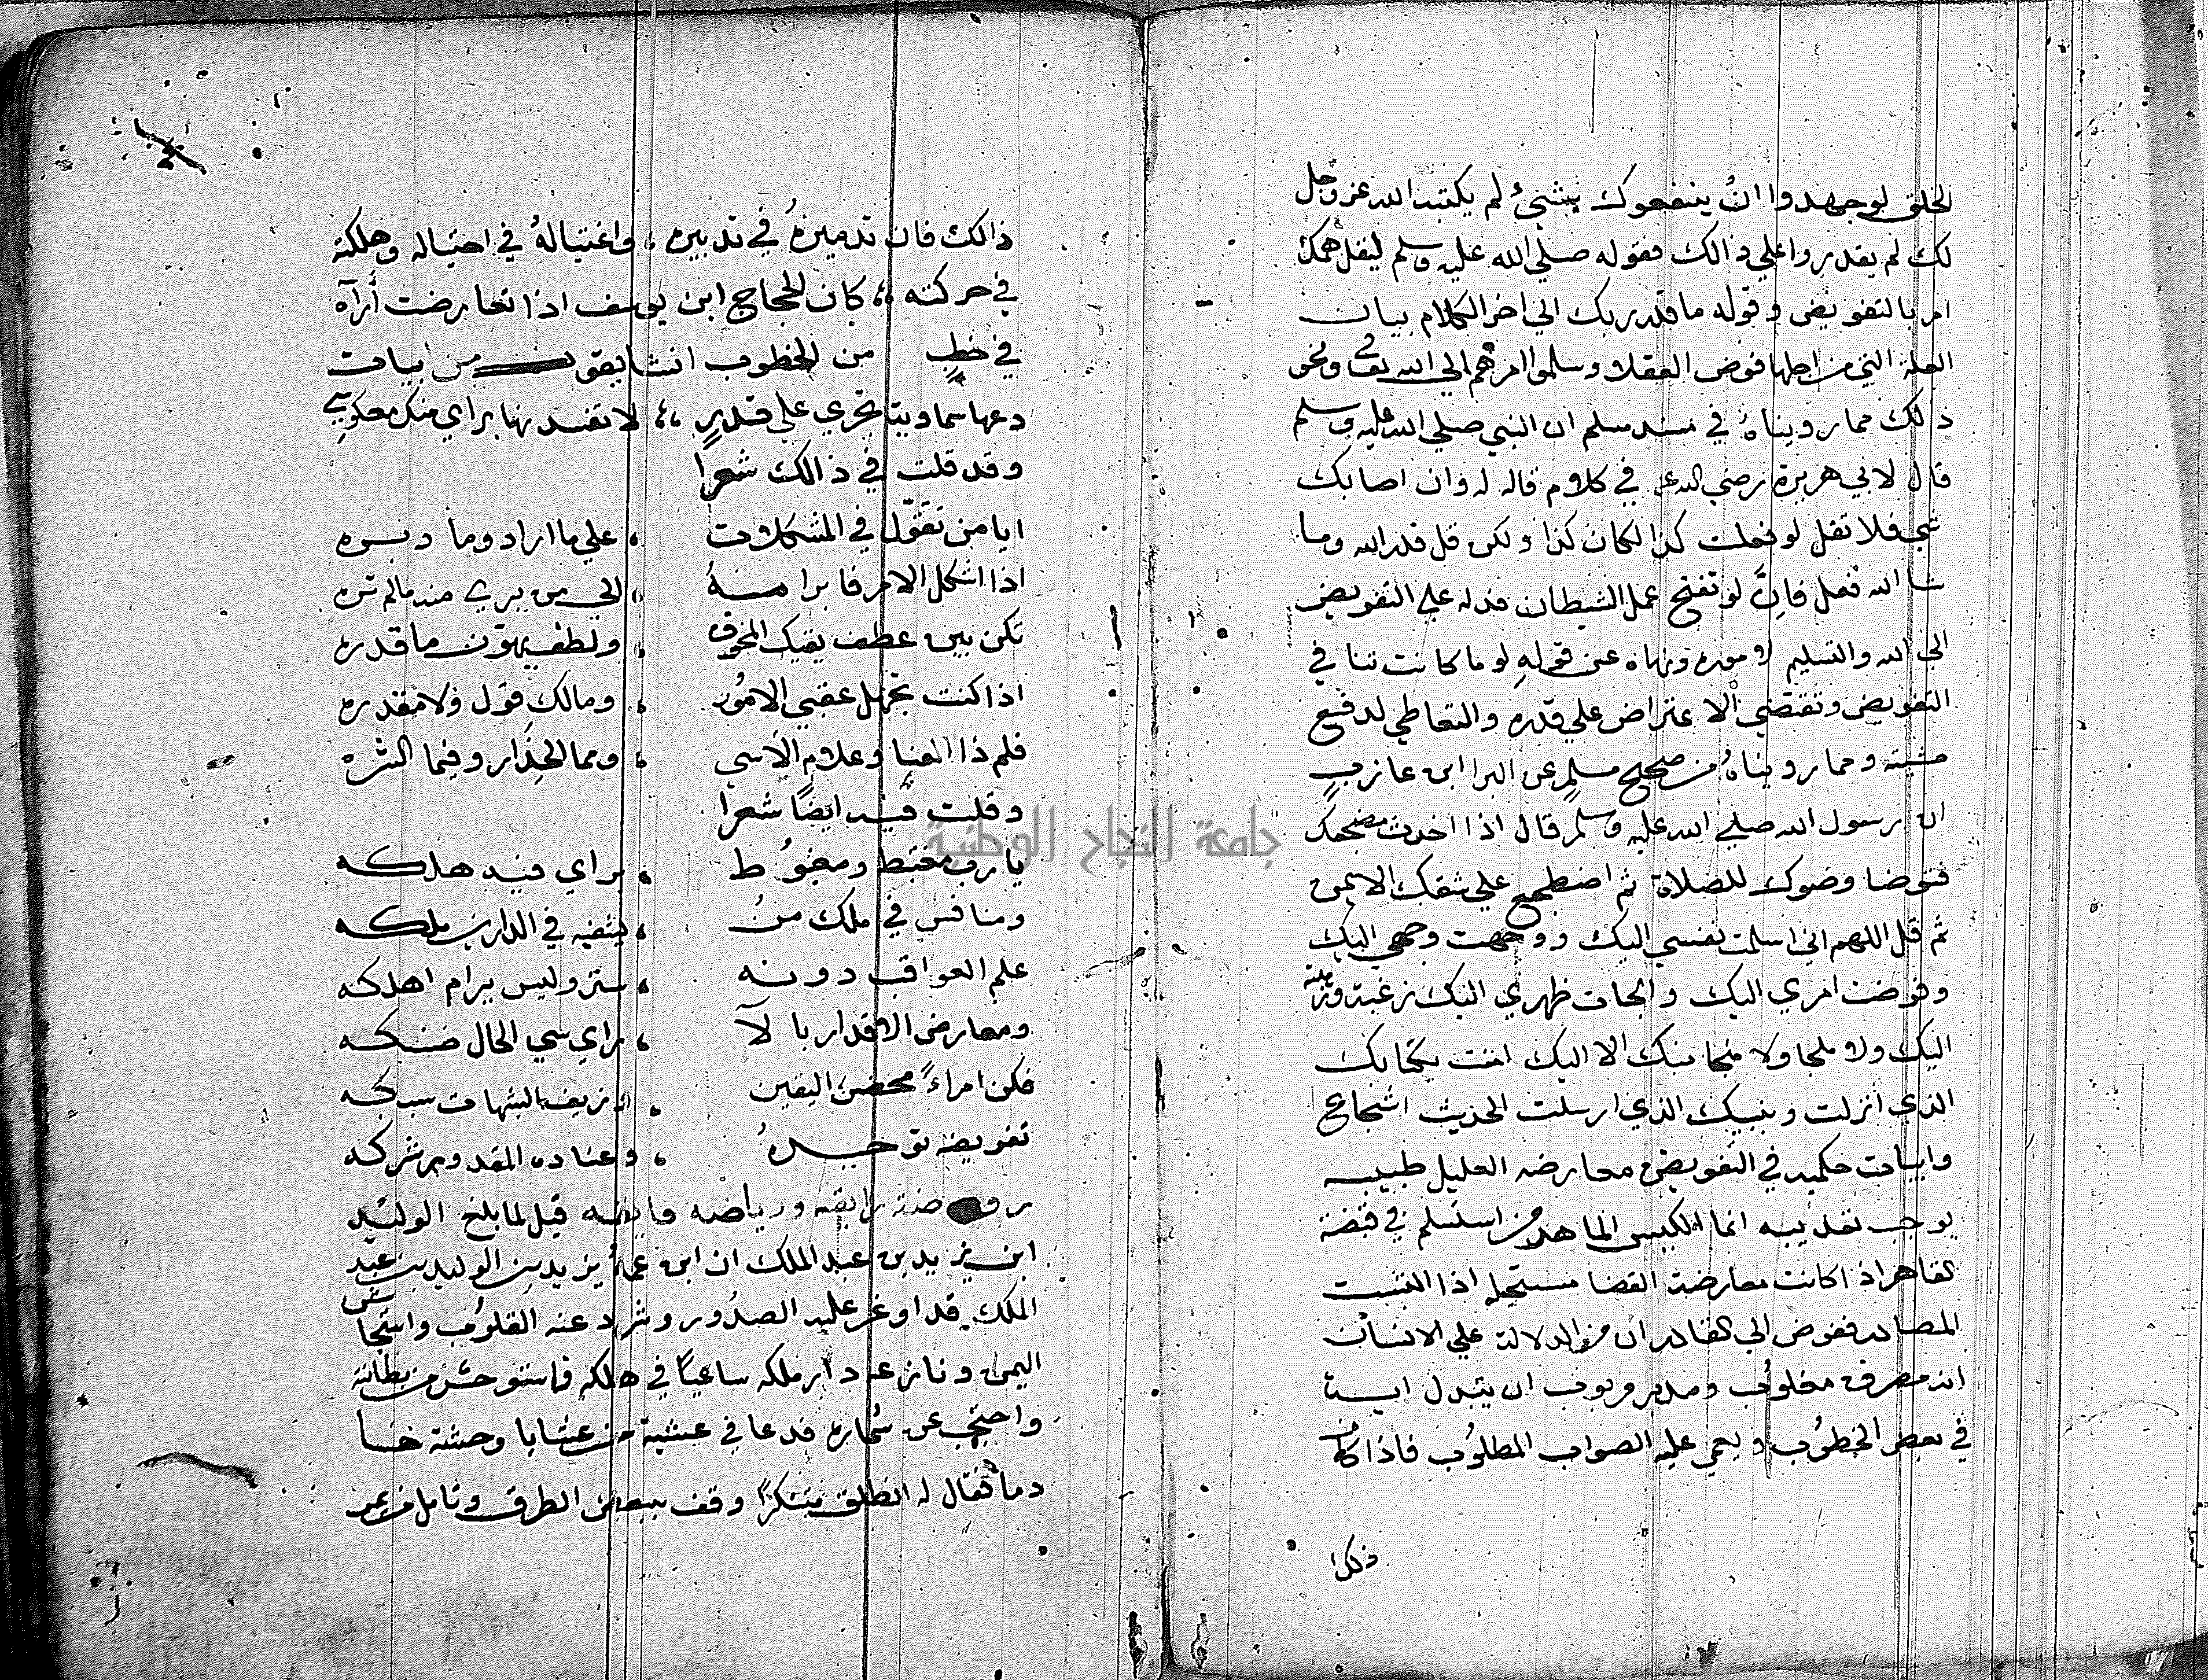 الخلق لوجهدوا ان ينفعوك بشيئ لم يكتبه الله عز وجل
لك لم يقدروا علي ذالك فقوله صلي الله عليه وسلم ليقل همك
امر بالتفويض وقوله ما قدر ربك الي اخر الكلام بيان
العلة التي من اجلها فوض العقلا وسلموا امرهم الي الله تعالى ونحو
ذلك مما رويناه في مسند مسلم ان النبي صلي الله عليه وسلم
قال لابي هريرة رضي الله عنه في كلام قاله له وان اصابك
شي فلا تقل لو فعلت كذا لكان كذا ولكن قل قدر الله وما
شا الله فعل فانَّ لو تفتح عمل الشيطان فدله علي التفويض
الي الله والتسليم لاموره ونهاه عن قوله لو ما كانت تنافي
التفويض وتقتضي الاعتراض علي قدره والتعاطي لدفع
مشيته ومما رويناه من صحيح مسلم عن البرا ابن عازب
ان رسول الله صلي الله عليه وسلم قال اذا اخذت مضجعك
فتوضا وضوك للصلاة ثم اضطجع علي شقك الايمن
ثم قل اللهم اني اسلمت نفسي اليك ووجهت وجهي اليك
وفوضت امري اليك والجات ظهري اليك رغبة ورهبة
اليك ولا ملجا ولا منجا منك الا اليك امنت بكتابك
الذي انزلت وبنبيك الذي ارسلت الحديث اشجاع
وابيات حكمية في التفويض معارضه العليل طبيبه
يوجب تعذيبه انما الكيس الماهر من استسلم في قبضة
القاهر اذ اكانت معارضة القضا مستحيله اذا التبست
المصادر ففوض الي القادر ان من الدلالة علي الانسان
انه مصرف مغلوب ومدبر مربوب ان يتبدل اية
في بعض الخطوب ويعمي عليه الصواب المطلوب فاذا كان
ذلك
ذالك فان تدميره في تدبيره ، واغتياله في احتياله وهلكته
في حركته ،، كان الحجاج ابن يوسف اذا تعارضت أرآه
في خطب من الخطوب انشا يقول من بيات
دعها سماوية تجري علي قدرٍ ،، لا تفسدنها براي منك معكوس
وقد قلت في ذالك شعرا
ايا من تقوّل في المشكلات ، علي ما اراد وما دبره
اذا اشكل الامر فابرا منهُ ، الي من يري منه مالم تره
تكن بين عطف يقيك المخوف ، ولطف يهوّن ما قدره
اذا كنت تجهل عقبي الامُور ، ومالك قول ولا مقدره
فلم ذا العنا وعلام الاسي ، ومما الحذار وفيما الشره
وقلت فيه ايضاً شعرا
يا رب مغتبط ومغبُوط ، براي فيه هلكه
ومنافس في ملك منُ ، يشقيه في الدارين ملكه
علم العواقب دونه ، ستر وليس يرام اهلكه
ومعارض الاقدار با لآ ، راي سي الحال ضنكه
فكن امراءً محض اليقين ، وزيف الشبهات سبكه
تفويضه توحيدهُ ، وعناده المقدور شركه
روضة رايقه ورياضه فايقه قيل لما بلغ الوليد
ابن يزيد بن عبد الملك ان ابن عمهُ يزيد بن الوليد بن عبد
الملك قد اوغر عليه الصدُور وشرد عنه القلوب واستجاش
اليمن ونازعه دار ملكه ساعياً في هلكه فاستوحش من بطانته
واحتجب عن سُماره فدعا في عشية من عشايا وحشته خا
دماً فقال له انطلق متنكراً وقف ببعض الطرق وتامل من يمر
جامعة النجاح الوطنية